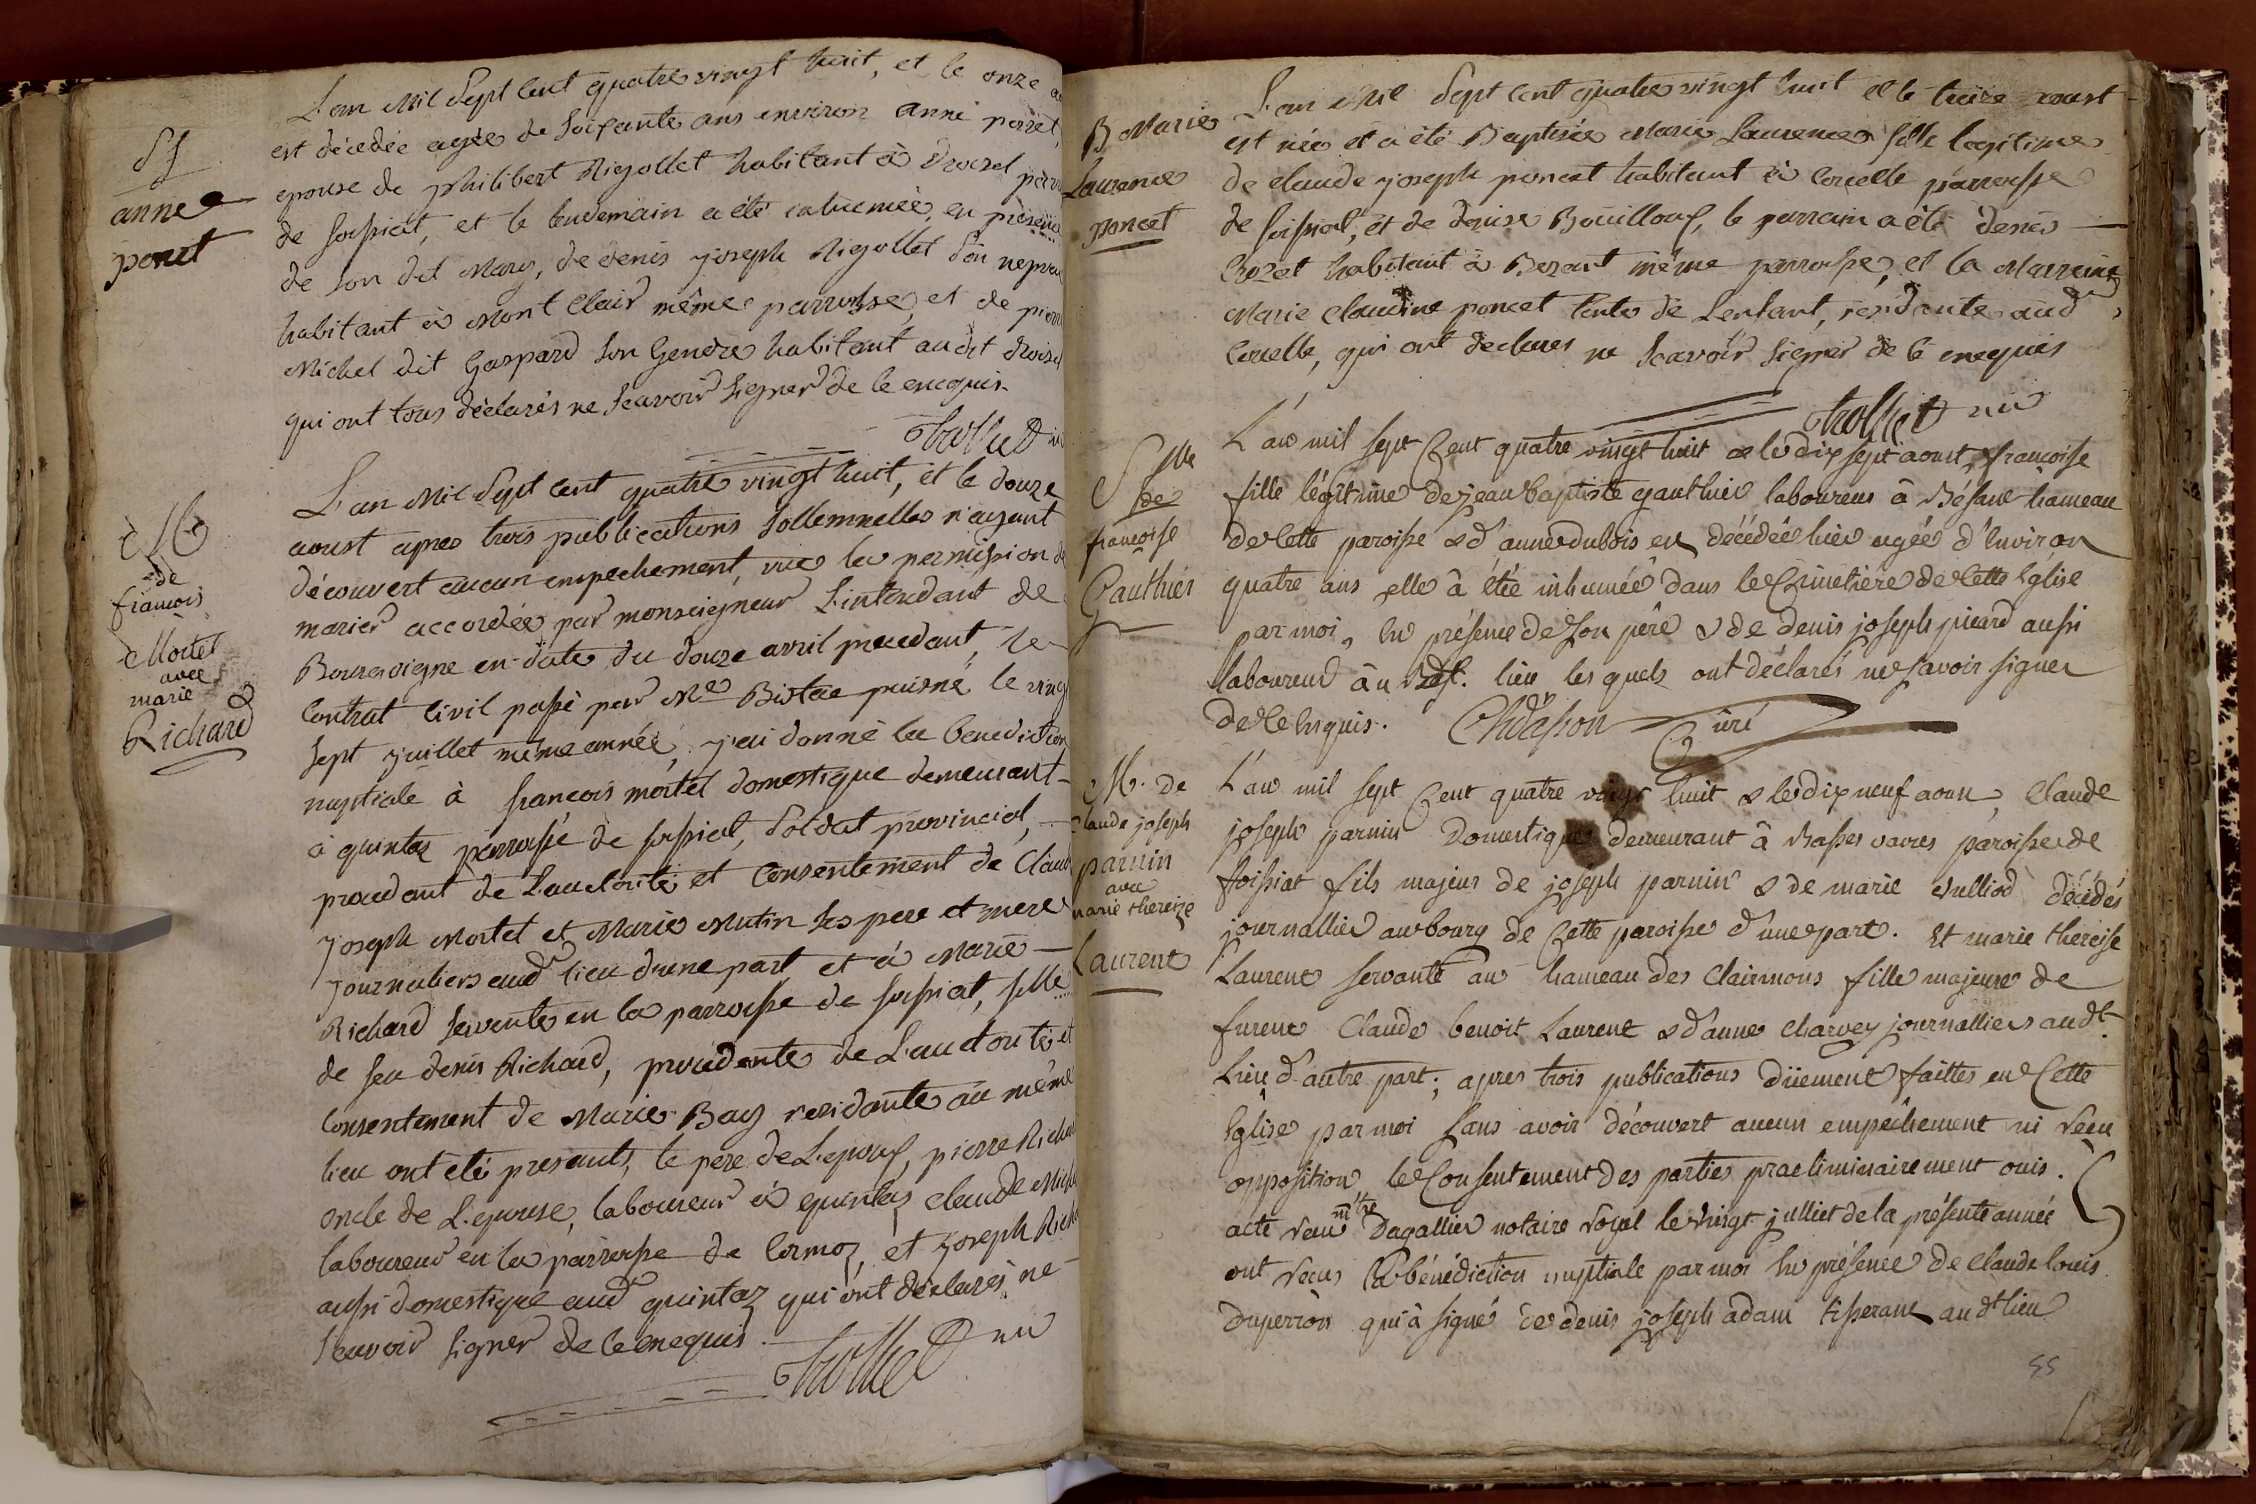 Sf
anne
peret
L'an Mil Sept Cent quatre vingt huit, et le onze
est décedée agée de soixante ans environ anne perret,
epouse de philibert Rigollet habitant à Droisel
de foissiat, et le lendemain a été inhumée, en présence
de son dit Mary, de denis joseph Rigollet son nepveu
habitant à Mont Clair même parroisse, et de pierre
Michel dit Gaspard son Gendre habitant audit
qui ont tous déclarés ne scavoir signer de ce enequis.
M
de
francois
Mortel
avec
marie
Richard
L'an Mil Sept cent quatre vingt huit, et le douze
aoust apres trois publications sollemnelles n'ayant
découvert aucun empechement, vue la permission de
marier accordée par monseigneur L'intendant de
Bourgoigne en date du douze avril precedant, le
Contrat Civil passé par Me puisné le vingt
sept juillet même année, j'ai donné la benediction
nuptiale à francois mortel domestique demeurant
à quintaz parroisse de foissiat, soldat provincial,
procedant de L'authorité et Consentement de Claude
joseph Mortel et Marie Mutin ses pere et mere
journaliers aud lieu d'une part et à Marie
Richard servente en la parroisse de foissiat, fille
de feu denis Richard, procedente de L'authorité et
Consentement de Marie Bay residante au même
lieu ont été presents, le pere de L'epoux, pierre Richard
oncle de L'epouse, laboureur à quintaz, claude
laboureur en la parroisse de Cormoz, et joseph
aussi domestique aud quintaz qui ont déclarés ne
scavoir signer de ce enequis
B Marie
Laurence
poncet
L'an Mil Sept Cent quatre vingt huit et le treize aoust
est née et a été Baptisée Marie Laurence fille legitime
de claude joseph poncet habitant à Corcelle parroisse
de foissiat, et de denise Bouilloux, le parrain a été denis
Crozet habitant à Bezant même parroisse, et la Marreine
Marie Claudine poncet tante de L'enfant, residante aud
Corcelle, qui ont declarés ne scavoir signer de ce enequis
S lle
de
françoise
Gauthier
L'an mil sept Cent quatre vingt huit & le dix sept aoust, françoise
fille légitime de jean baptiste gauthier laboureur à Bésane hameau
de Cette paroisse & d'anne dubois est décédée hier agée d'Environ
quatre ans elle à étée inhumée dans le Cimetière de Cette Eglise
par moi, En présence de son père & de denis joseph picard aussi
laboureur àu lieu les quels ont déclarés ne savoir signer
de Ce Enquis. Chdasson Curé
M. de
claude joseph
paruin
avec
marie thereize
Laurent
L'an mil sept Cent quatre vingt huit & le dix neuf aoust, Claude
joseph paruin Domestique demeurant à Basses vavres paroisse de
foissiat fils majeur de joseph paruin & de marie vulliod décédés
journallier au bourg de Cette paroisse d'une part. Et marie thereise
Laurent servante au hameau des Clairmons fille majeure de
furent Claude benoit Laurent & d'anne Charvey journalliers audt.
Lieu d'autre part; apres trois publications düement faittes en Cette
Eglise par moi sans avoir découvert aucun empéchement ni reçu
opposition le Consentement des parties praeliminairement ouis.
acte reçu mtre Dagallier notaire royal le vingt julliet de la présente année
ont reçus la bénédiction nuptiale par moi En présence de Claude louis
duperron qui à signé de denis joseph adam tisserant audt lieu
55